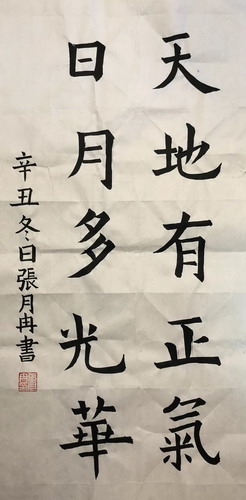 天地有正氣
日月多光華
辛丑冬日張月冉書